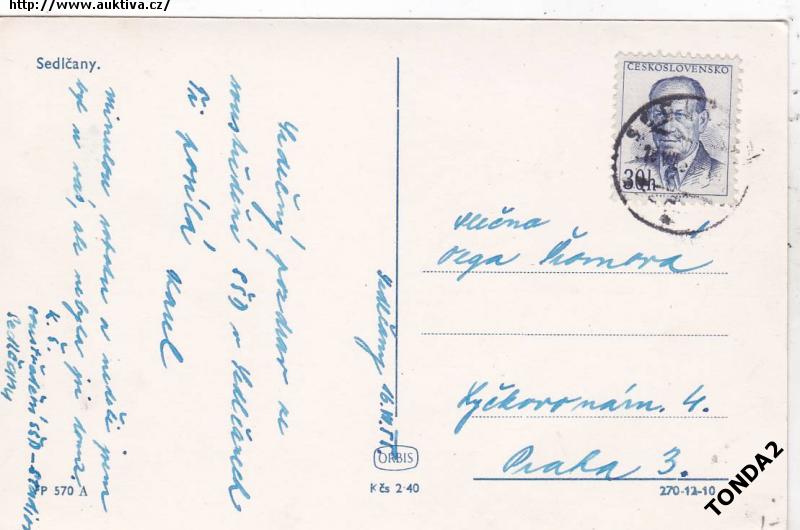 http://www.auktiva.cz/
Sedlčany.
Srdečný pozdrav ze
soustředění SŠD v Sedlčanech
Ti posílá
Karel
Minulou sobotu a neděli jsem
byl u vás, ale nebyla jsi doma.
K. Š.
soustředění SŠD
Sedlčany
Sedlčany
ČESKOSLOVENSKO
30h
Slečna
Olga
Lyčkovo nám. 4.
Praha 3.
ORBIS
Kčs 2·40
FP 570 A
270-12-10
TONDA2